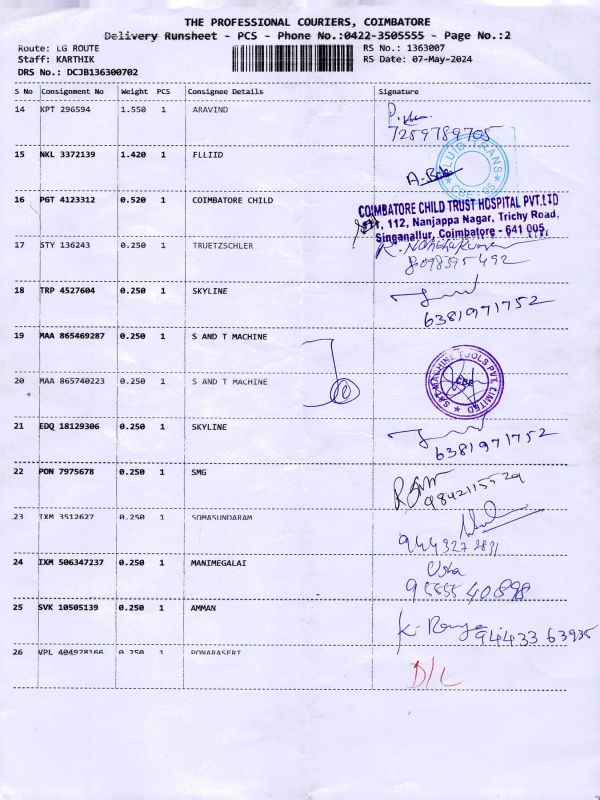 THE PROFESSIONAL COURIERS, COIMBATORE
Delivery Runsheet - PCS - Phone No.:0422-3505555 - Page No.:2
Route: LG ROUTE RS No.: 1363007
Staff: KARTHIK RS Date: 07-May-2024
DRS No.: DCJB136300702
S No Consignment No Weight PCS Consignee Details Signature
14 KPT 296594 1.550 1 ARAVIND
7259789705
15 NKL 3372139 1.420 1 FLLIID
16 PGT 4123312 0.520 1 COIMBATORE CHILD
COIMBATORE CHILD TRUST HOSPITAL PVT.LTD
112, Nanjappa Nagar, Trichy Road,
Singanallur, Coimbatore - 641 005.
17 STY 136243 0.250 1 TRUETZSCHLER
8098395492
18 TRP 4527604 0.250 1 SKYLINE
6381971752
19 MAA 865469287 0.250 1 S AND T MACHINE
20 MAA 865740223 0.250 1 S AND T MACHINE
S&T MACHINE TOOLS PVT. LIMITED
CBE
21 EDQ 18129306 0.250 1 SKYLINE
6381971752
22 PON 7975678 0.250 1 SMG
9842115529
23 IXM 3512627 0.250 1 SOMASUNDARAM
944327 2831
24 IXM 506347237 0.250 1 MANIMEGALAI
Usha
95555 40898
25 SVK 10505139 0.250 1 AMMAN
94433 63935
26 VPL 404928166 0.250 1 PONARASERT
D/L